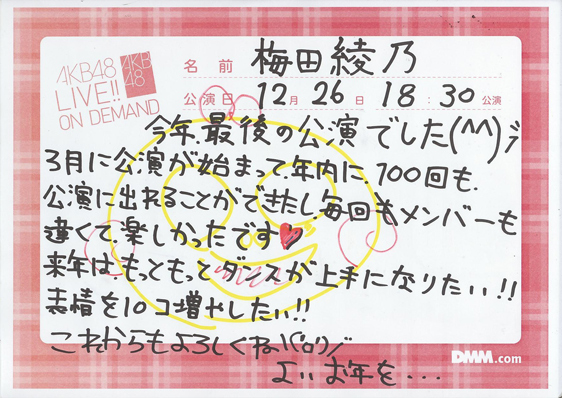 AKB48
LIVE!!
ON DEMAND
AKB
48
名前 梅田綾乃
公演日 12月26日 18:30公演
今年.最後の公演でした(^^)
3月に公演が始まって.年内に100回も.
公演に出れることができたし.毎回もメンバーも
違くて.楽しかったです♥
来年は.もっともっとダンスが上手になりたい!!
表情を10コ増やしたい!!
これからもよろしくね
よいお年を・・・
DMM.com